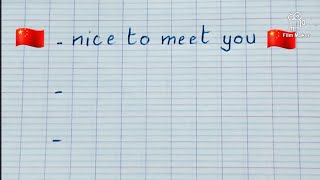 - nice to meet you
-
-
Film Maker